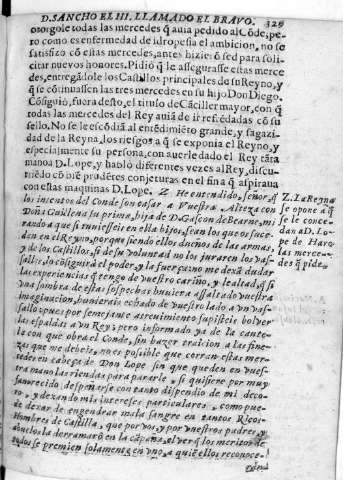 D. SANCHO EL III. LLAMADO EL BRAVO. 329
otorgole todas las mercedes q̃ auia pedido al Cõde, pe-
ro como es enfermedad de idropesia el ambicion, no se
satisfizo cõ estas mercedes, antes hizierõ sed para soli-
citar nueuos fines. Pidiò q̃ le assegurasse estas merce
des, entregãdole los Castillos principales de su Reyno, y
que se cõtinuassen las tres mercedes en su hijo Don Diego.
Cõsiguiò, fuera desto, el titulo de Cãciller mayor, con q̃
todas las mercedes del Rey auiã de ir refrẽdadas cõ su
sello. No se le escõdiã al entẽdimiẽto grande, y sagazi-
dad de la Reyna, los riesgos a q̃ se exponia el Reyno, y
especialmente su persona, con auerle dado el Rey tãta
mano a D. Lope, y hablò diferentes vezes al Rey, discu-
rriẽdo cõ biẽ prudẽtes conjeturas en el fin a q̃ aspiraua
con estas maquinas D. Lope. Z He entendido, señor, q̃
los intentos del Conde son casar a Vuestra Alteza con
Doña Guillena su prima, hija de D. Gascon de Bearne, mi-
rando a que si tuuiessen en ella hijos, sean los que os suce-
den en el Reyno, porque siendo ellos dueños de las armas,
y de los Castillos, si de su voluntad no los juraren los vas-
sallos, lo conseguirà el poder, y la fuerça; no me dexã dudar
las experiencias q̃ tengo de vuestro cariño, y lealtad, q̃ si
vna sombra de estas sospechas huuiera assaltado vuestra
imaginacion, huuierais echado de vuestro lado a vn vas-
sallo; pues por semejante atreuimiento supisteis boluer
las espaldas a vn Rey; pero informado ya de la caute-
la con que obra el Conde, sin hazer traicion a las fine-
zas que me debeis, no es posible que corran estas mer-
cedes en cabeça de Don Lope sin que queden en vues-
tra mano las riendas para pararle, y si quisiere por muy
despeñarse con tanto dispendio de mi deco-
ro, y dexando mis intereses particulares, como pue-
de dexar de engendrar mala sangre en tantos Ricos-
Hombres de Castilla, que por vos, y por vuestros padres, y
abuelos la derramarõ en la cãpaña, el ver q̃ los meritos de
todos se premien solamente en vno, a quiẽ ellos reconoce-
Z. La Reyna
se opone a q̃
se le conce-
dan a D. Lo-
pe de Haro
las merce-
des q̃ pide.